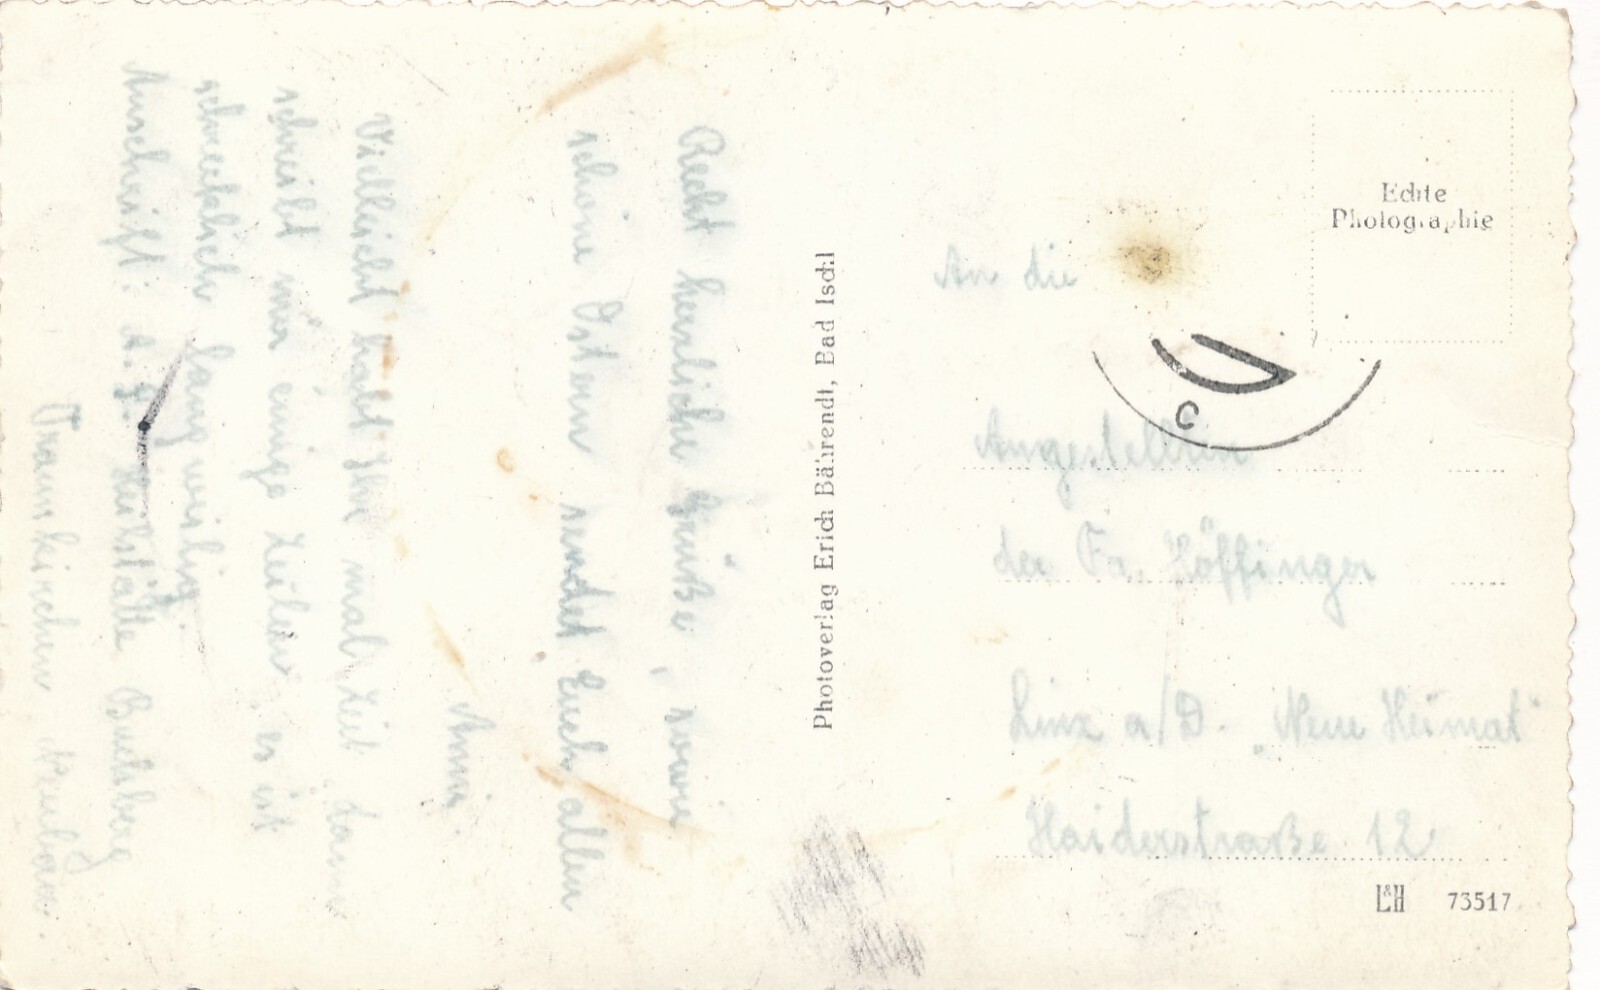 Recht herzliche Grüße, sowie
schöne Ostern sendet Euch allen
Anni.
Vielleicht habt Ihr mal Zeit dann
schreibt mir einige Zeilen, es ist
schrecklich langweilig.
Anschrift: A. F. Heilstätte Buchberg
Traunkirchen Neubau.
Photoverlag Erich Bährendt, Bad Ischl
Echte
Photographie
An die
Angestellten
der Fa. Höffinger
Linz a/D. "Neue Heimat"
Haiderstraße 12
L&H 73517